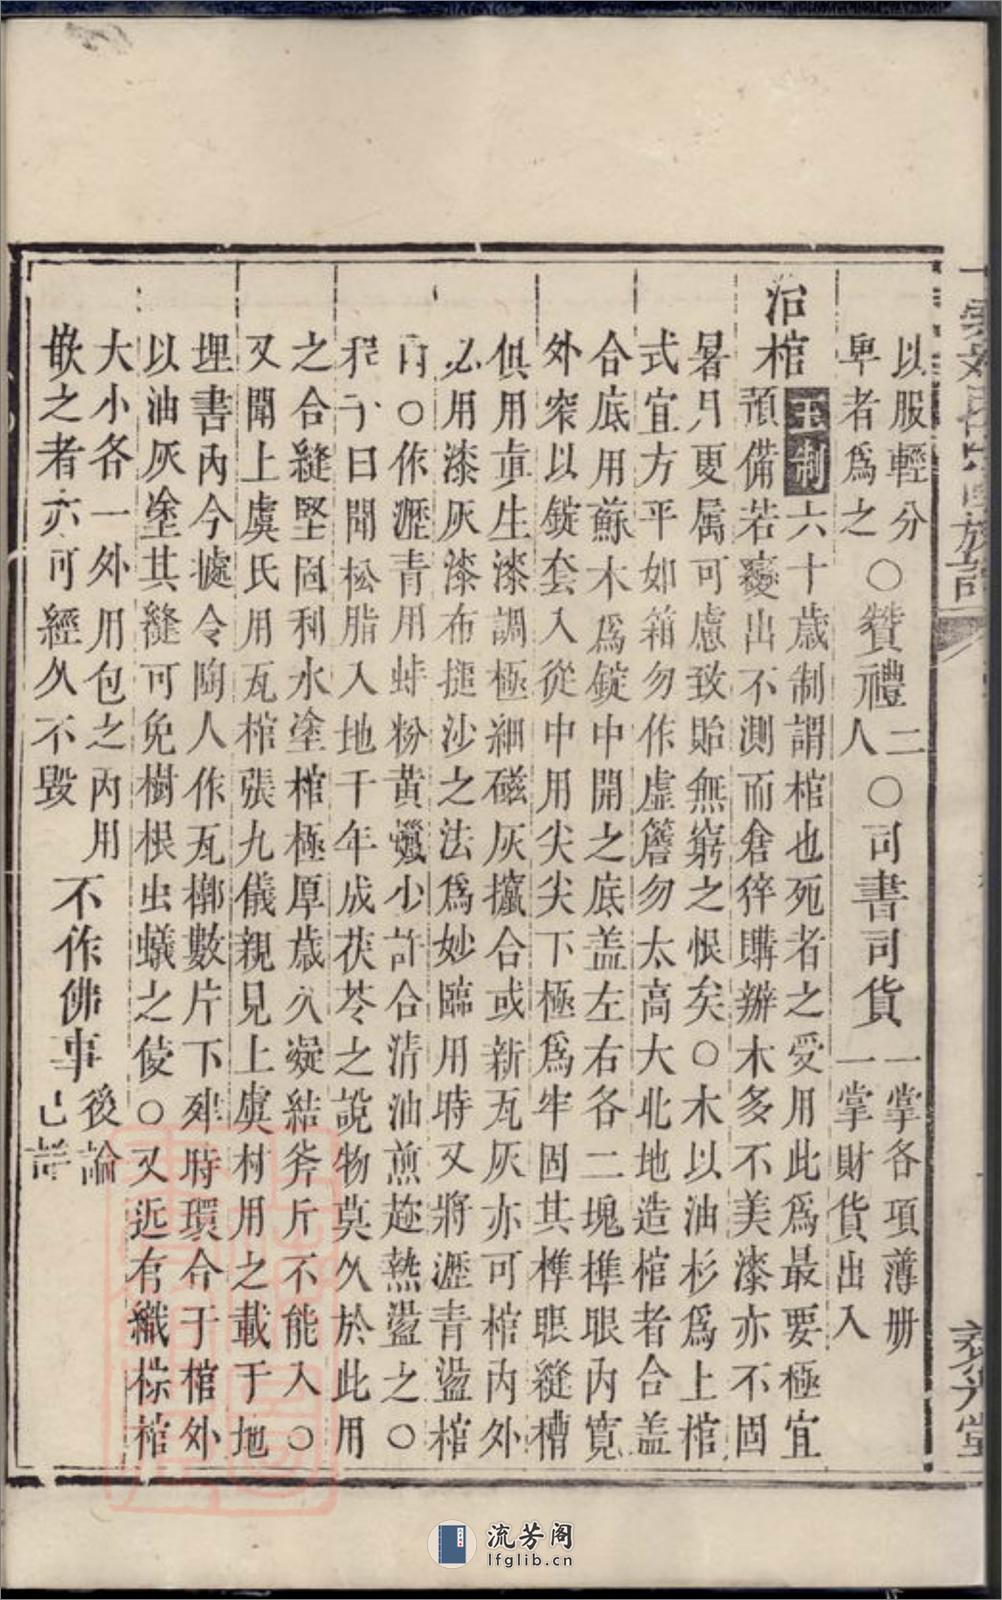 以服輕分○贊禮二○司書司貨一掌各項薄册
卑者爲之人一掌財貨出入
治棺
王制六十歲制謂棺也死者之受用此爲最要極宜
預備若變出不測而倉猝購辦木多不美漆亦不固
暑月更属可慮致貽無窮之恨矣○木以油杉爲上棺
式宜方平如箱勿作虛簷勿太高大北地造棺者合盖
合底用蘇木爲錠中開之底盖左右各二塊榫眼內寬
外窄以錠套入從中用尖尖下極爲牢固其榫眼縫槽
俱用眞生漆調極細磁灰攛合或新瓦灰亦可棺內外
必用漆灰漆布搥沙之法爲妙臨用時又將瀝青盪棺
內○作瀝青用蚌粉黃蠟少許合清油煎趂熱盪之○
程子曰聞松脂入地千年成茯苓之說物莫久於此用
之合縫堅固利水塗棺極厚歲久凝結斧斤不能入○
又聞上虞氏用瓦棺張九儀親見上虞村用之載于地
埋書內今據令陶人作瓦槨數片下𡎺時環合于棺外
以油灰塗其縫可免樹根虫蟻之侵○又近有織棕棺
大小各一外用包之內用
嵌之者亦可經久不毀
不作佛事後論
已詳
褧光堂
流芳阁
lfglib.cn